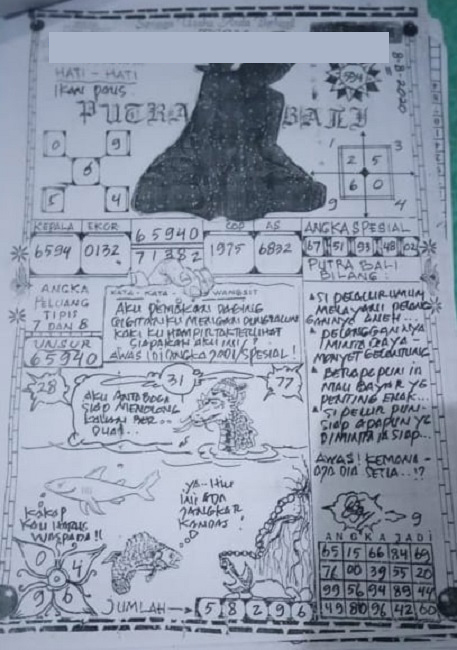 8-8-2020
HATI - HATI
IKAN PAUS
5594
PUTRA BALI
0 9
8
5 4
1 3
2 5
6 0
9 4
KEPALA EKOR 65940 COP AS
6594 0132 71382 1975 6832
ANGKA SPESIAL
67 51 93 48 02
PUTRA BALI
BILANG:
ANGKA
PELUANG
TIPIS
7 DAN 8
UNSUR
65940
KATA - KATA WANGSIT
AKU PEMAKAN DAGING
GIGITANKU
KAKI KU HAMPIR TAK TERLIHAT
SIAPAKAH AKU INI?
AWAS! DIANGKA 2001/SPESIAL!
28 31 77
AKU ANTABOGA
SIAP MENOLONG
KALIAN BER..
DUA...
SI PELUUR UMUM
MELAYANI PELANG
GANNYA ANEH
PELANGGANNYA
MINTA GAYA-
MONYET GELANTUNG
BERAPAPUN IA
MAU BAYAR YG
PENTING ENAK...
SI PELUR PUN-
SIAP APAPUN YG
DIMINTA IA SIAP...
AWAS! KEMANA-
DIA SETIA..!?
KAKAP
KAU HARUS
WASPADA!!
YA-HUI
INI ADA
JANGKAR
KAMAJ!
0 4
9 6
JUMLAH → 5 8 2 9 6
9
ANGKA JADI
65 15 66 84 69
76 00 39 55 20
99 56 94 89 44
49 80 96 42 60